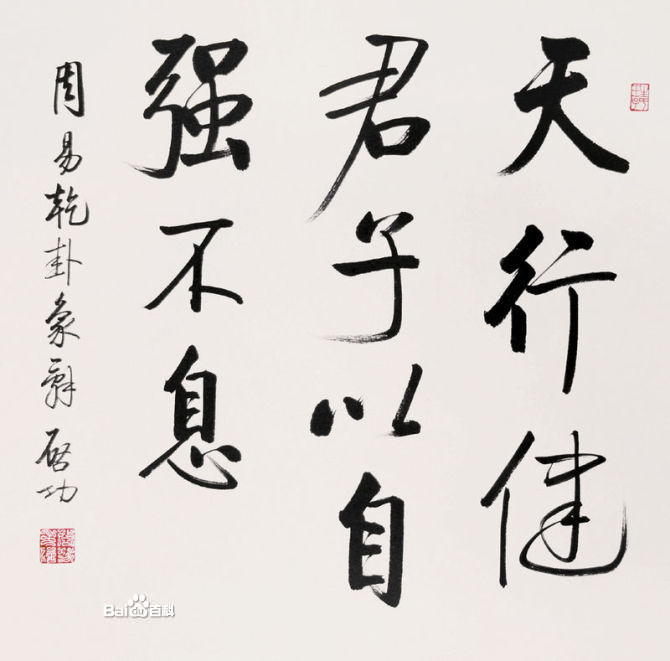 天行健
君子以自
强不息
周易乾卦象辞 启功
Bai百科